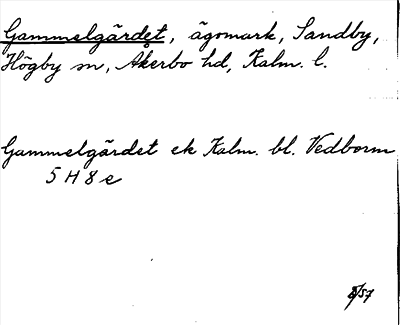 Gammelgärdet, ägomark, Sandby,
Högby sn, Åkerbo hd, Kalm. l.
Gammelgärdet ek Kalm. bl. Vedborm
5 H 8 e
/57